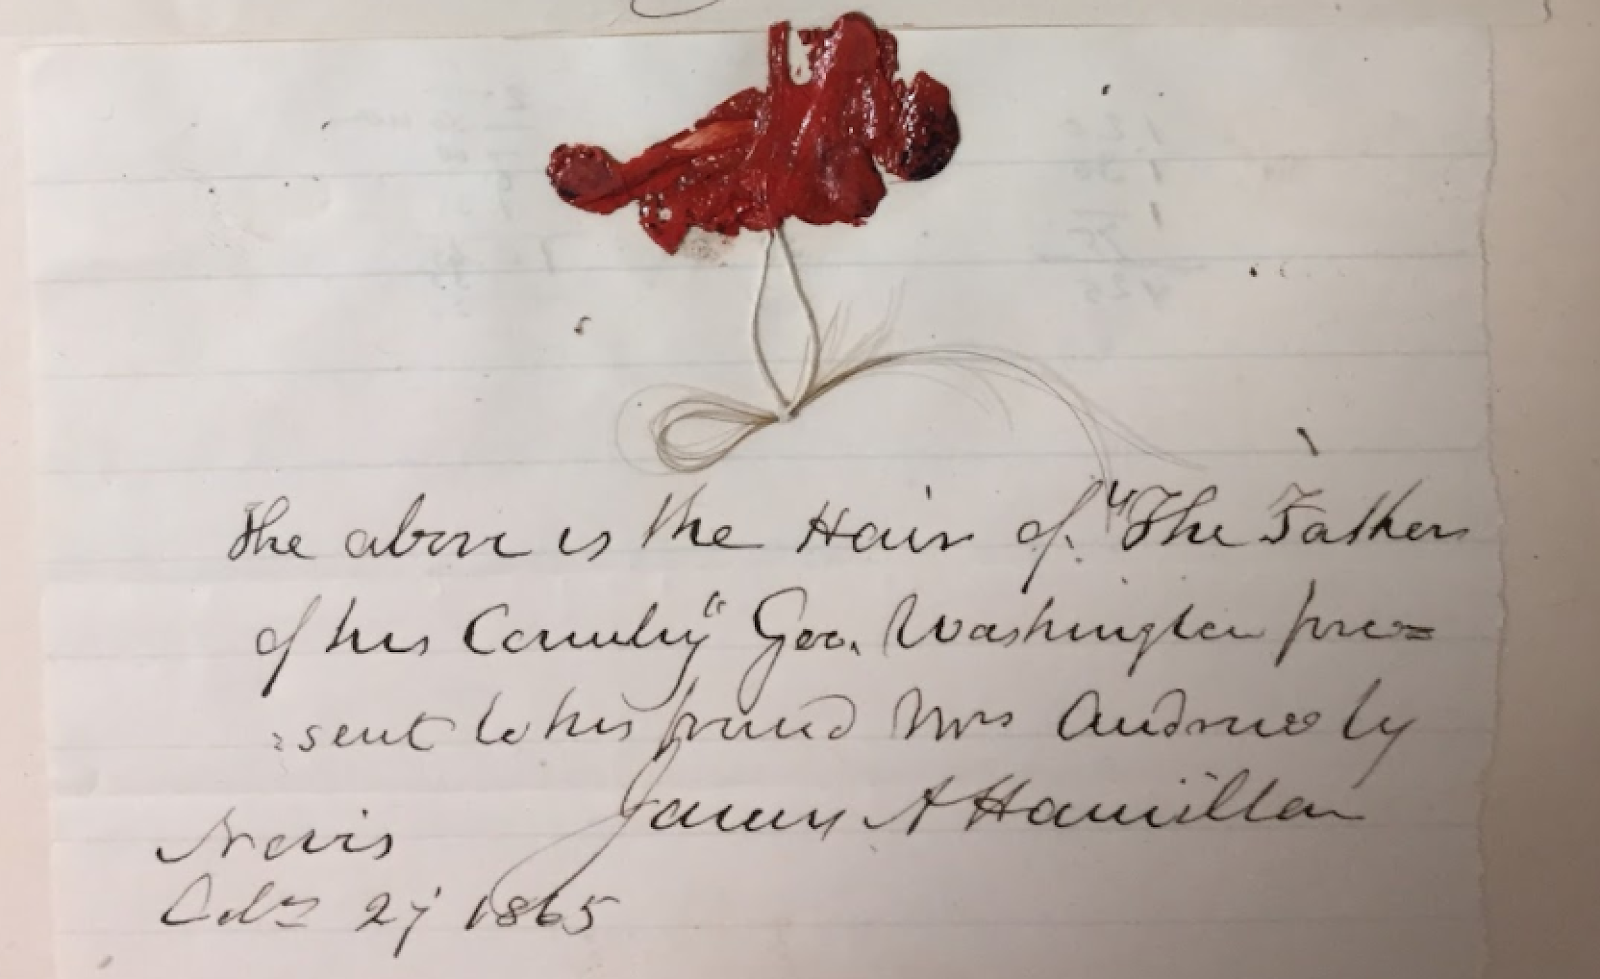 The above is the Hair of "The Father
of his Country" Geo. Washington pre=
=sent to his friend Mrs Andrews by
James A Hamilton
Nevis
Octr 27 1865